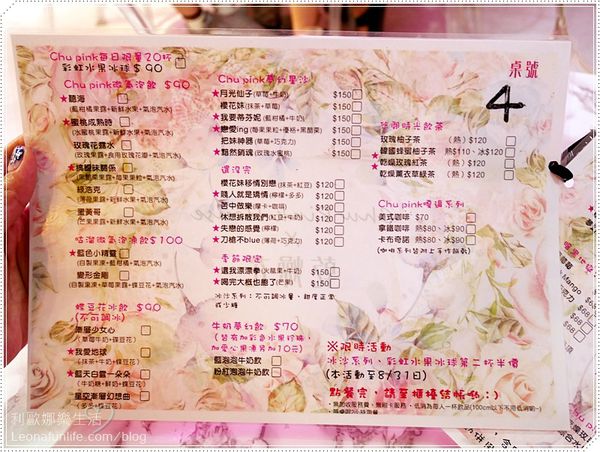 Chu pink每日限量20杯
彩虹水果冰球 $90
Chu pink微氣泡飲 $90
★臨海
(藍柑橘果露+新鮮水果+氣泡汽水)
★蜜桃成熟時
(水蜜桃果露+新鮮水果+氣泡汽水)
玫瑰花露水
(玫瑰果露+食用玫瑰花瓣+氣泡汽水)
(黑醋栗果露+莓果+新鮮水果+氣泡汽水)
綠浩克
蛋黃哥
(芒果果露+新鮮水果+氣泡汽水)
咕溜微氣泡凍飲$100
★藍色小精靈
(自製果凍+藍柑橘+氣泡汽水)
變形金剛
(自製果凍+草莓+氣泡汽水)
蝶豆花冰飲 $90
(不可調冰)
漸層少女心
(草莓牛奶+蝶豆花)
★我愛地球
(抹茶+牛奶+蝶豆花)
★藍天白雲一朵朵
(牛奶糖+鮮奶+蝶豆花)
星空漸層幻想曲
(多多+蝶豆花)
Chu pink夢幻星沙
★月光仙子(草莓+牛奶) $150
櫻花妹(抹茶+草莓) $150
★我要蒂芬妮(藍莓+牛奶) $150
★戀愛ing(莓果果粒+優格+黑醋栗) $150
把妹神器(草莓+巧克力) $150
★黯然銷魂(玫瑰水蜜桃) $150
還沒完
櫻花妹移情別戀(抹茶+紅豆) $120
★隨人就是矯情(檸檬+多多) $120
★苦中做樂(檸檬+咖啡) $120
休想拆散我們(紅豆+牛奶) $120
★失戀的感覺(檸檬) $120
★刀槍不blue(薄荷+巧克力) $120
季節限定
★還我漂漂拳(火龍果+牛奶) $150
★鬧完大概也飽了(芒果) $150
冰沙系列:不可調冰量,甜度正常
或少糖
牛奶夢幻飲 $70
(皆有加彩色水果珍珠,
加愛心果凍另加10元)
藍泡泡牛奶飲
粉紅泡泡牛奶飲
桌號
4
玫瑰柚子茶 (熱)$120
韓國蜂蜜柚子茶 熱$110、冰$120
★乾燥玫瑰紅茶 (熱)$120
★乾燥薰衣草綠茶 (熱)$120
Chu pink嘎逼系列
美式咖啡 $70
拿鐵咖啡 熱$80、冰$90
卡布奇諾 熱$80、冰$90
※限時活動
冰沙系列、彩虹水果冰球第二杯半價
(本活動至8/31日)
點餐完,請至櫃檯結帳喲:)
利歐娜樂生活
Leonafunlife.com/blog